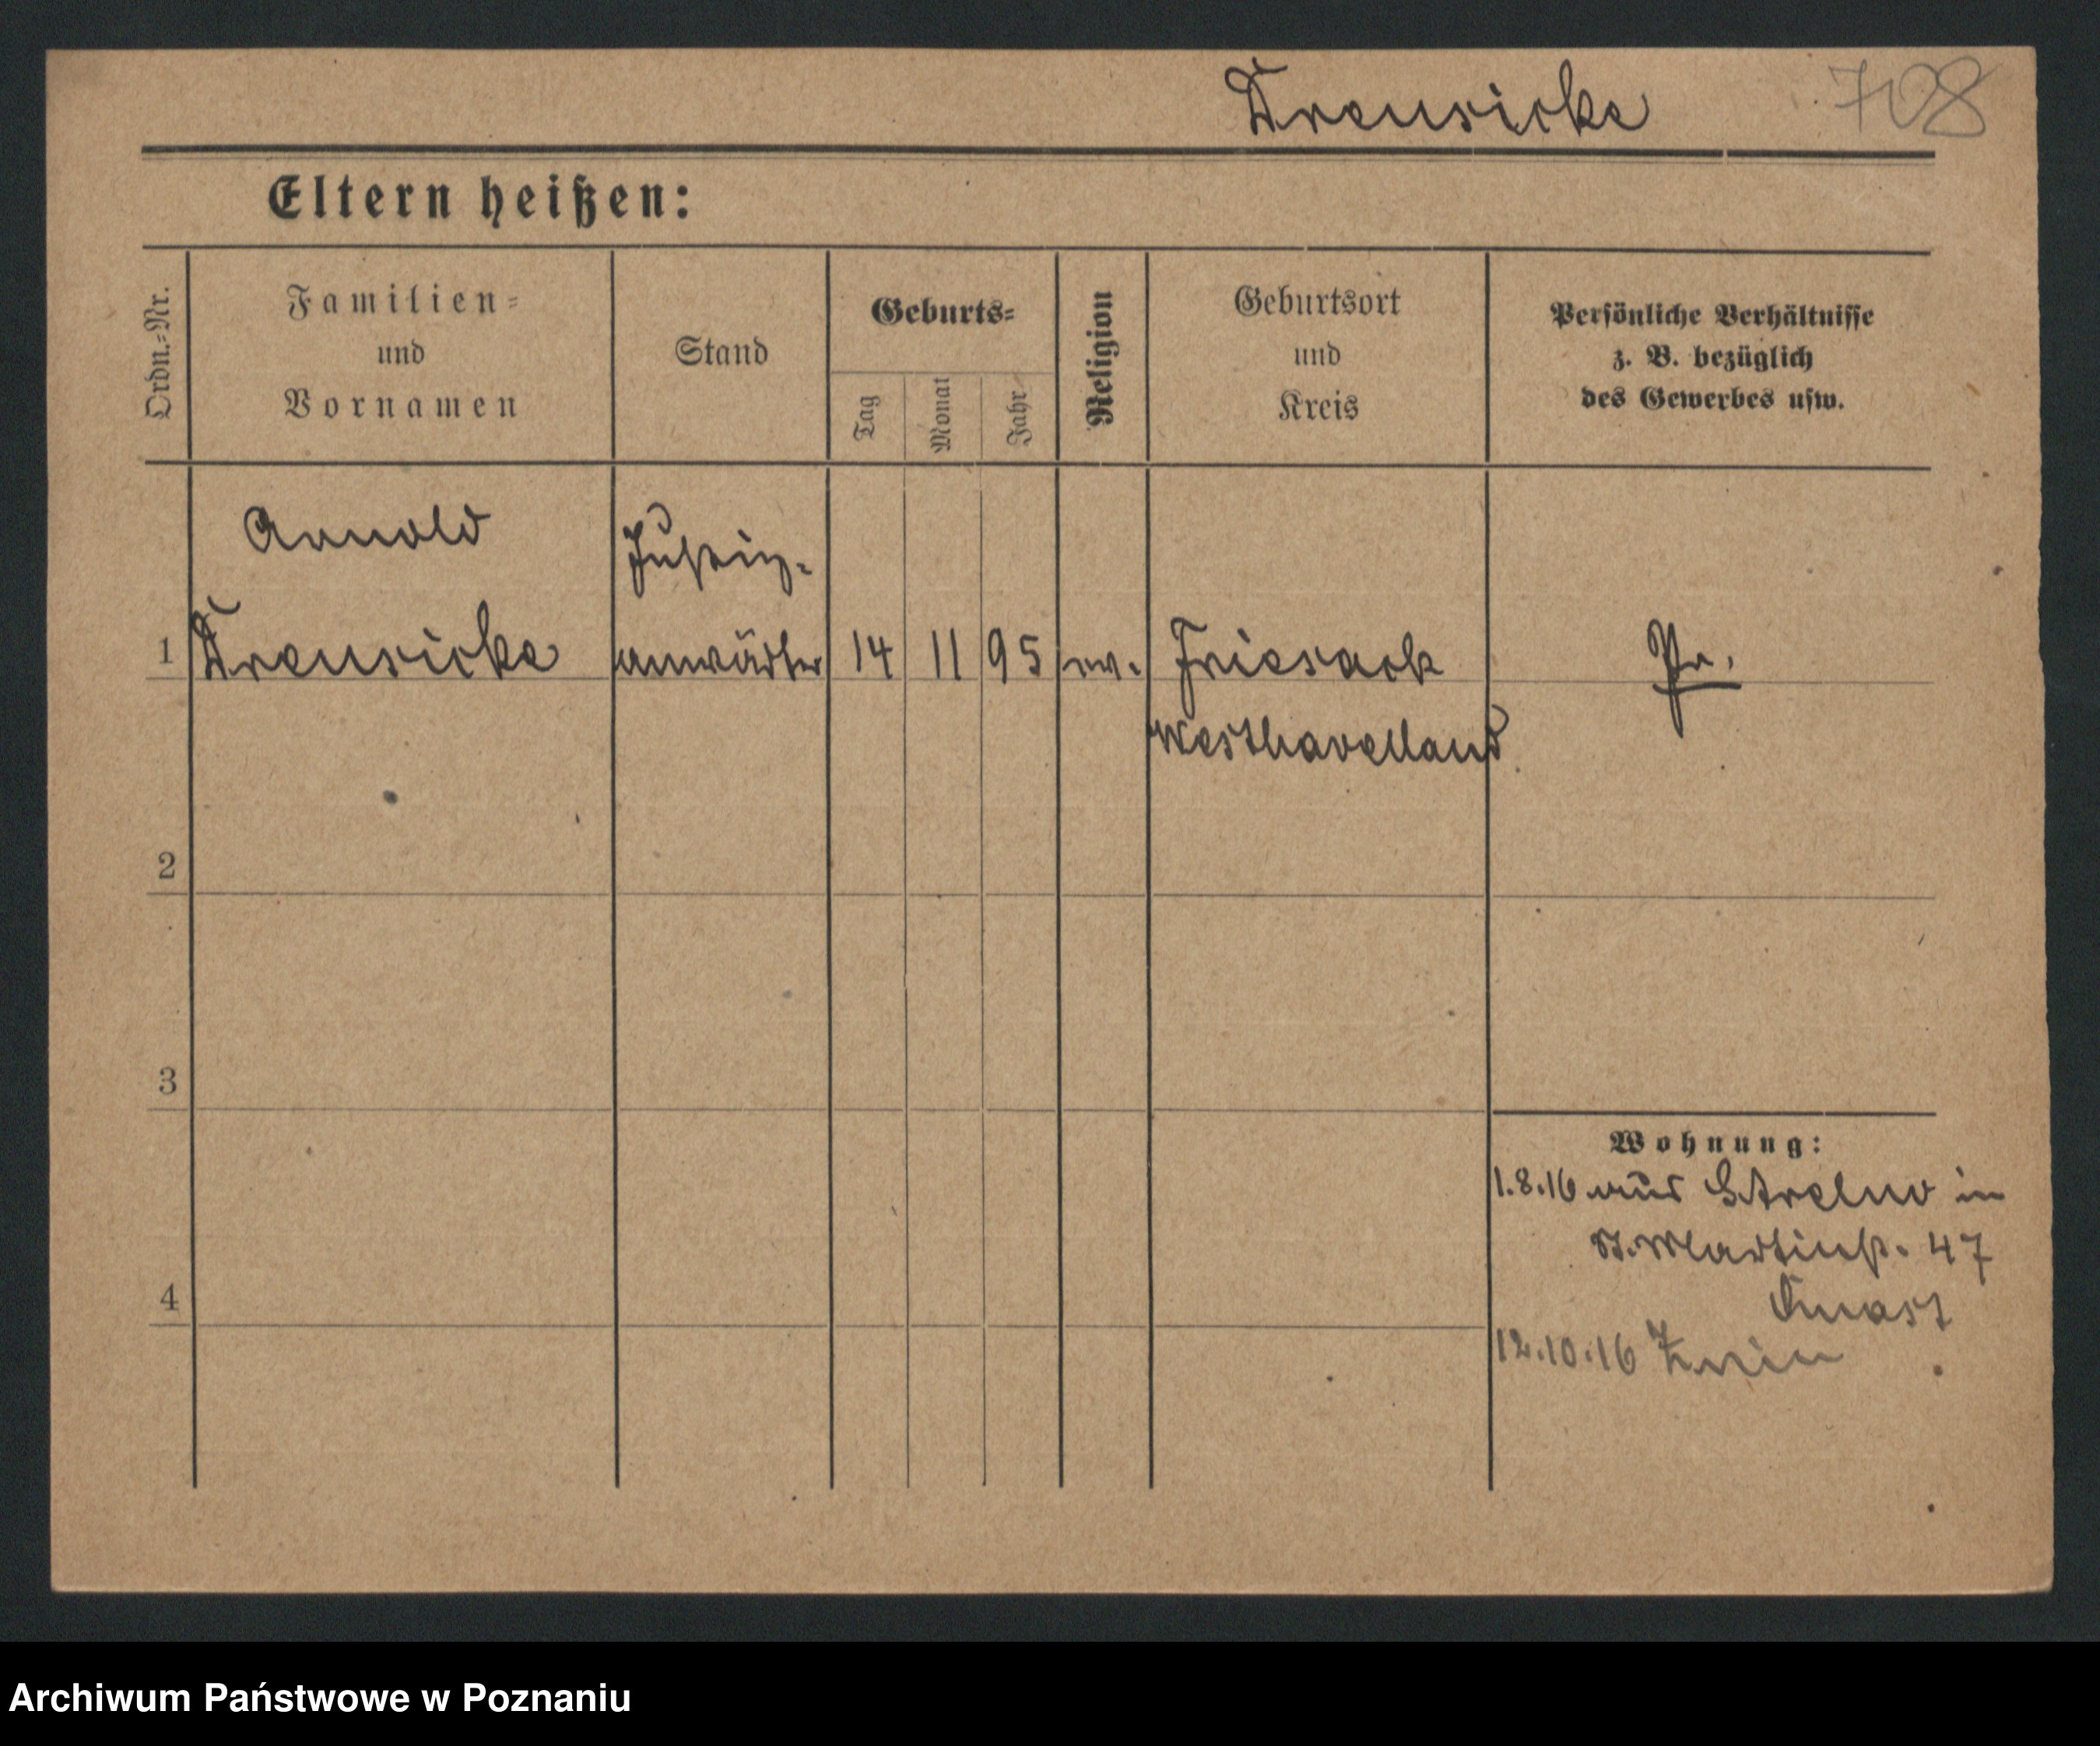 Drensicke 708
Eltern heißen:
Ordn.-Nr.
Familien-
und
Vornamen
Stand
Geburts-
Tag
Monat
Jahr
Religion
Geburtsort
und
Kreis
Persönliche Verhältnisse
z. B. bezüglich
des Gewerbes usw.
Arnold
Justiz-
1 Drensicke anwärter 14 11 95 ev. Friesack Pr.
Westhavelland
2
3
Wohnung:
1.8.16 aus Strelno in
St. Martinstr. 47
4
Quast
12.10.16 Znin
Archiwum Państwowe w Poznaniu